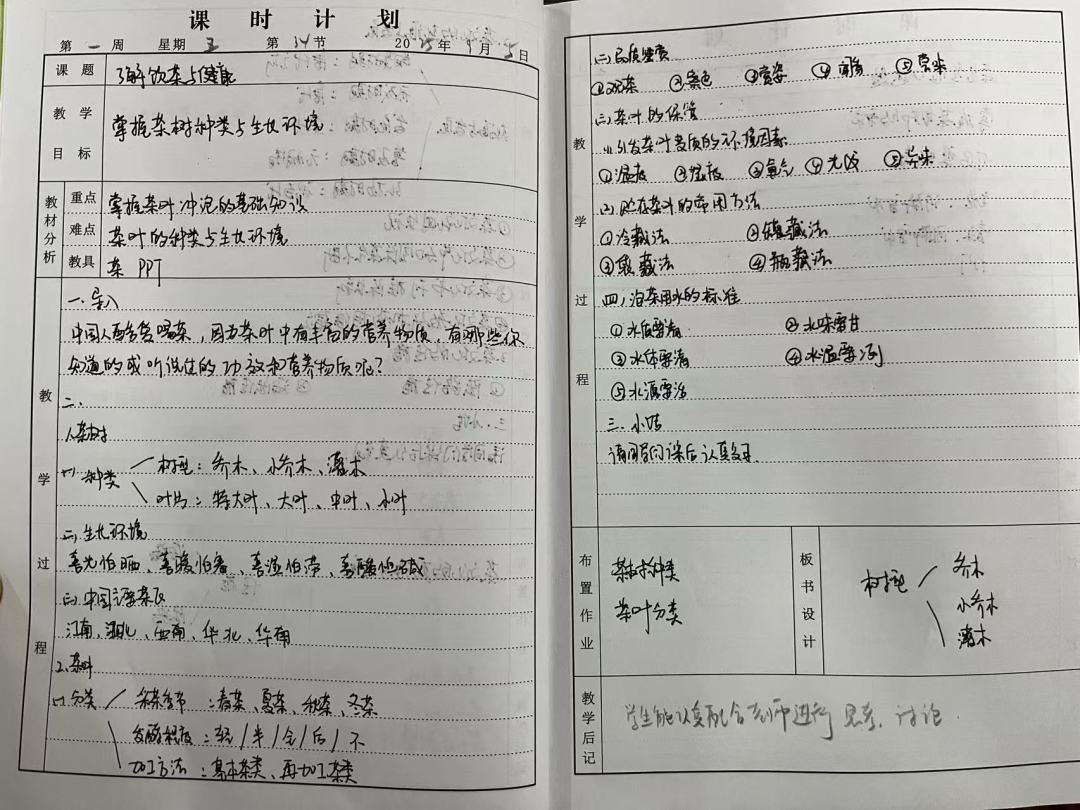 课时计划
第一周 星期五 第3、4节 20 年9月5日
课题 了解饮茶与健康
教学目标 掌握茶树种类与生长环境
教材分析 重点 掌握茶叶冲泡的基础知识
难点 茶叶的种类与生长环境
教具 茶 PPT
教学过程
一.导入
中国人都爱喝茶,因为茶叶中有丰富的营养物质,有哪些你
知道的或听说过的功效和营养物质呢?
二.
1.茶树
(一)种类 树型:乔木、小乔木、灌木
叶片:特大叶、大叶、中叶、小叶
(二)生长环境
喜光怕晒、喜暖怕寒、喜湿怕涝、喜酸怕碱
(三)中国主要茶区
江南、江北、西南、华北、华南
2.茶叶
(一)分类 采茶季节:春茶、夏茶、秋茶、冬茶
发酵程度:轻/半/全/后/不
加工方法:基本茶类、再加工茶类
教学过程
(二)品质鉴赏
①观茶 ②察色 ③赏姿 ④闻香 ⑤尝味
(三)茶叶的保管
(1)引发茶叶变质的环境因素
①温度 ②湿度 ③氧气 ④光线 ⑤异味
(2)贮存茶叶的常用方法
①冷藏法 ②镇藏法
③ 藏法 ④瓶藏法
(四)泡茶用水的标准
①水质要清 ②水味要甘
③水体要清 ④水温要冽
⑤水源要活
三.小结
请同学们课后认真复习
布置作业
茶树种类
茶叶分类
板书设计
树型 乔木
小乔木
灌木
教学后记
学生能认真配合老师进行思考、讨论.